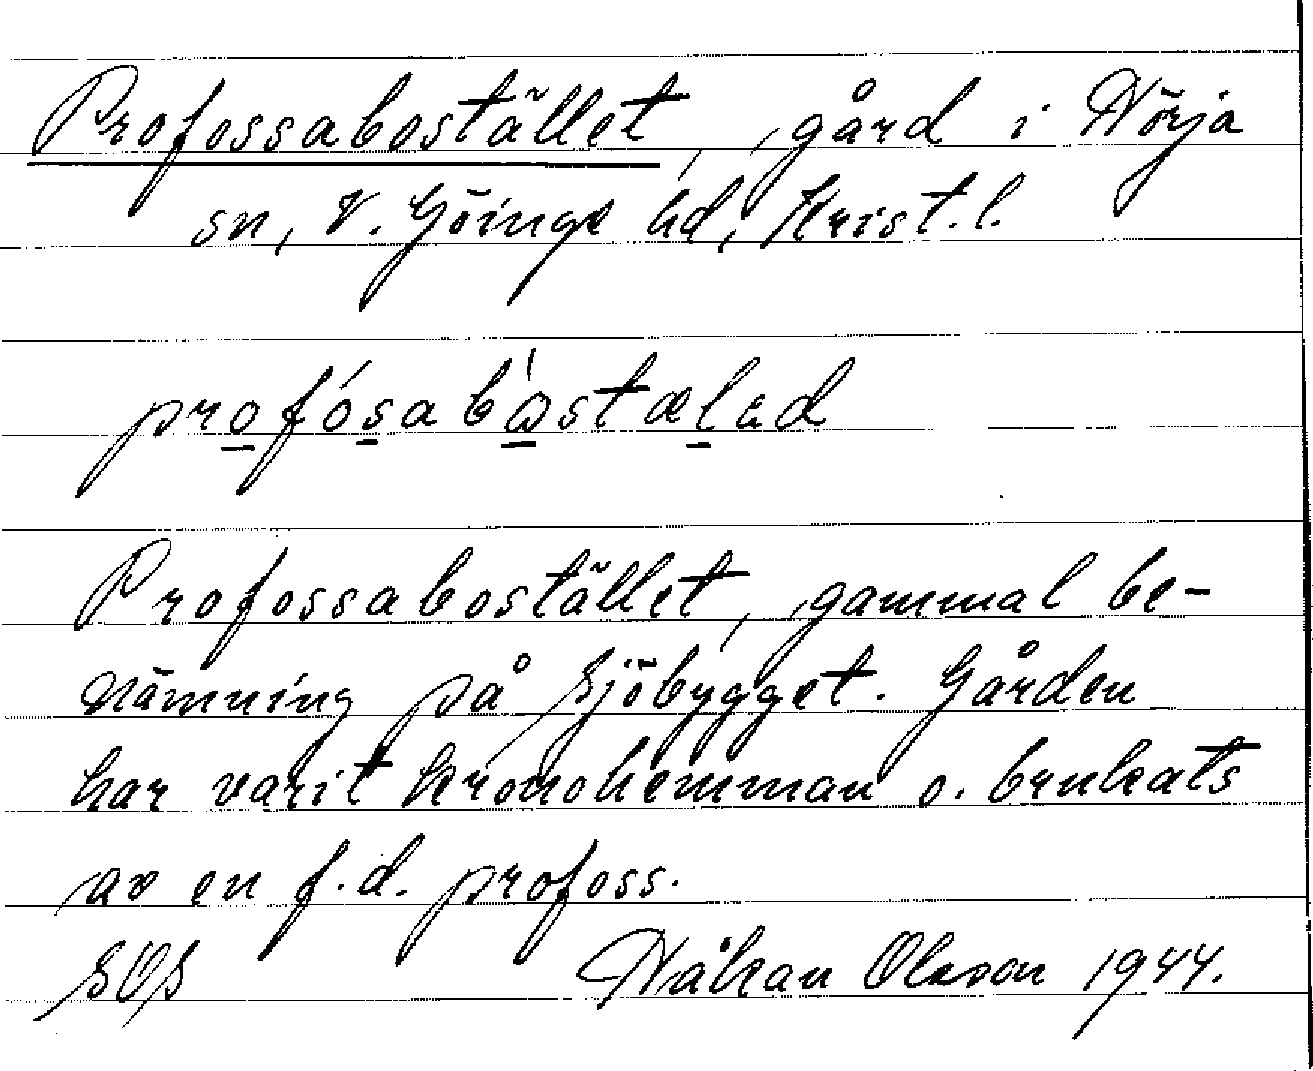 Profossabostället, gård i Nörja
sn, V. Göinge hd, Krist. l.
profósabòstælad
Profossabostället, gammal be-
nämning på Sjöbygget. Gården
har varit kronohemman o. brukats
av en f.d. profoss.
SOS Håkan Olsson 1944.